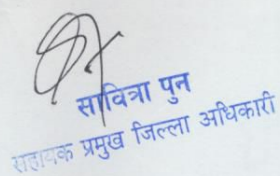 सावित्रा पुन
सहायक प्रमुख जिल्ला अधिकारी